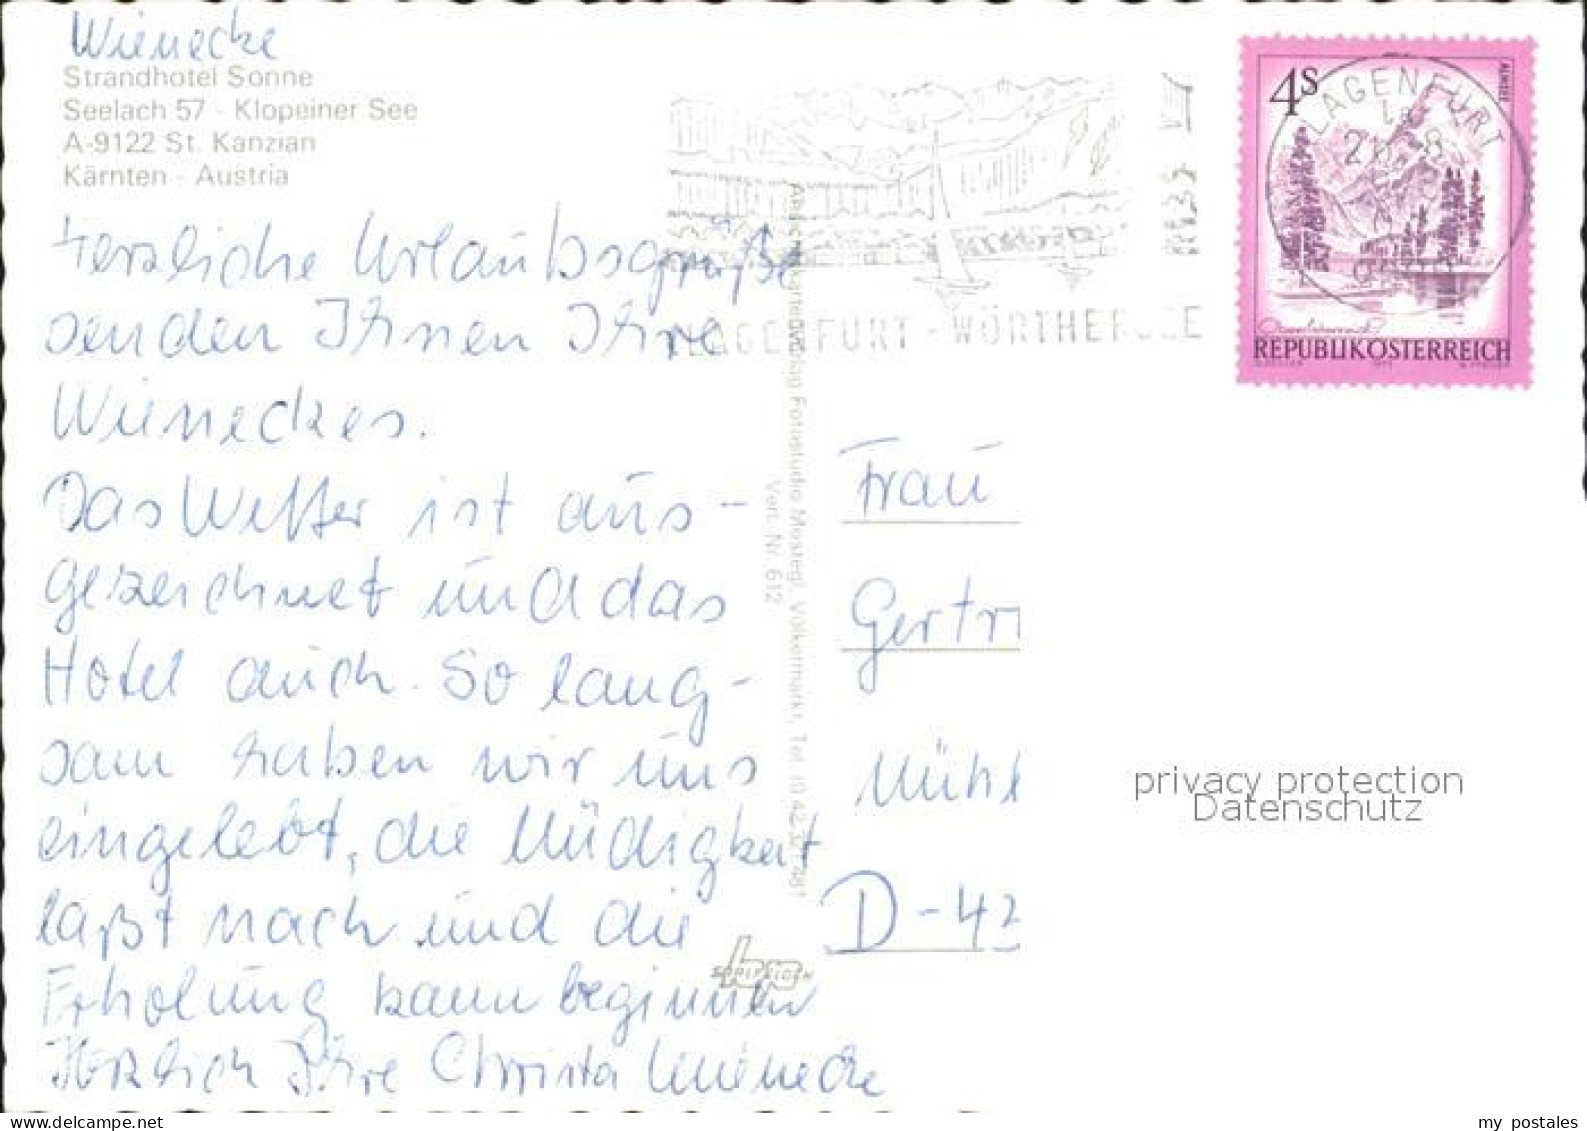 Wienecke
Strandhotel Sonne
Seelach 57 - Klopeiner See
A-9122 St. Kanzian
Kärnten - Austria
Herzliche Urlaubsgrüße
senden Ihnen Ihre
Wieneckes.
Das Wetter ist aus-
gezeichnet und das
Hotel auch. So lang-
sam haben wir uns
eingelebt, die Müdigkeit
laßt nach und die
Erholung kann beginnen
Herzlich Ihre Christa Wienecke
Fotostudio Mostegl, Völkermarkt, Tel.
Verl.-Nr. 612
KLAGENFURT - WÖRTHERSEE
4S
ALMSEE
KLAGENFURT
Oberösterreich
REPUBLIK ÖSTERREICH
Frau
Gertr
Mühl
D-42
privacy protection
Datenschutz
my postales